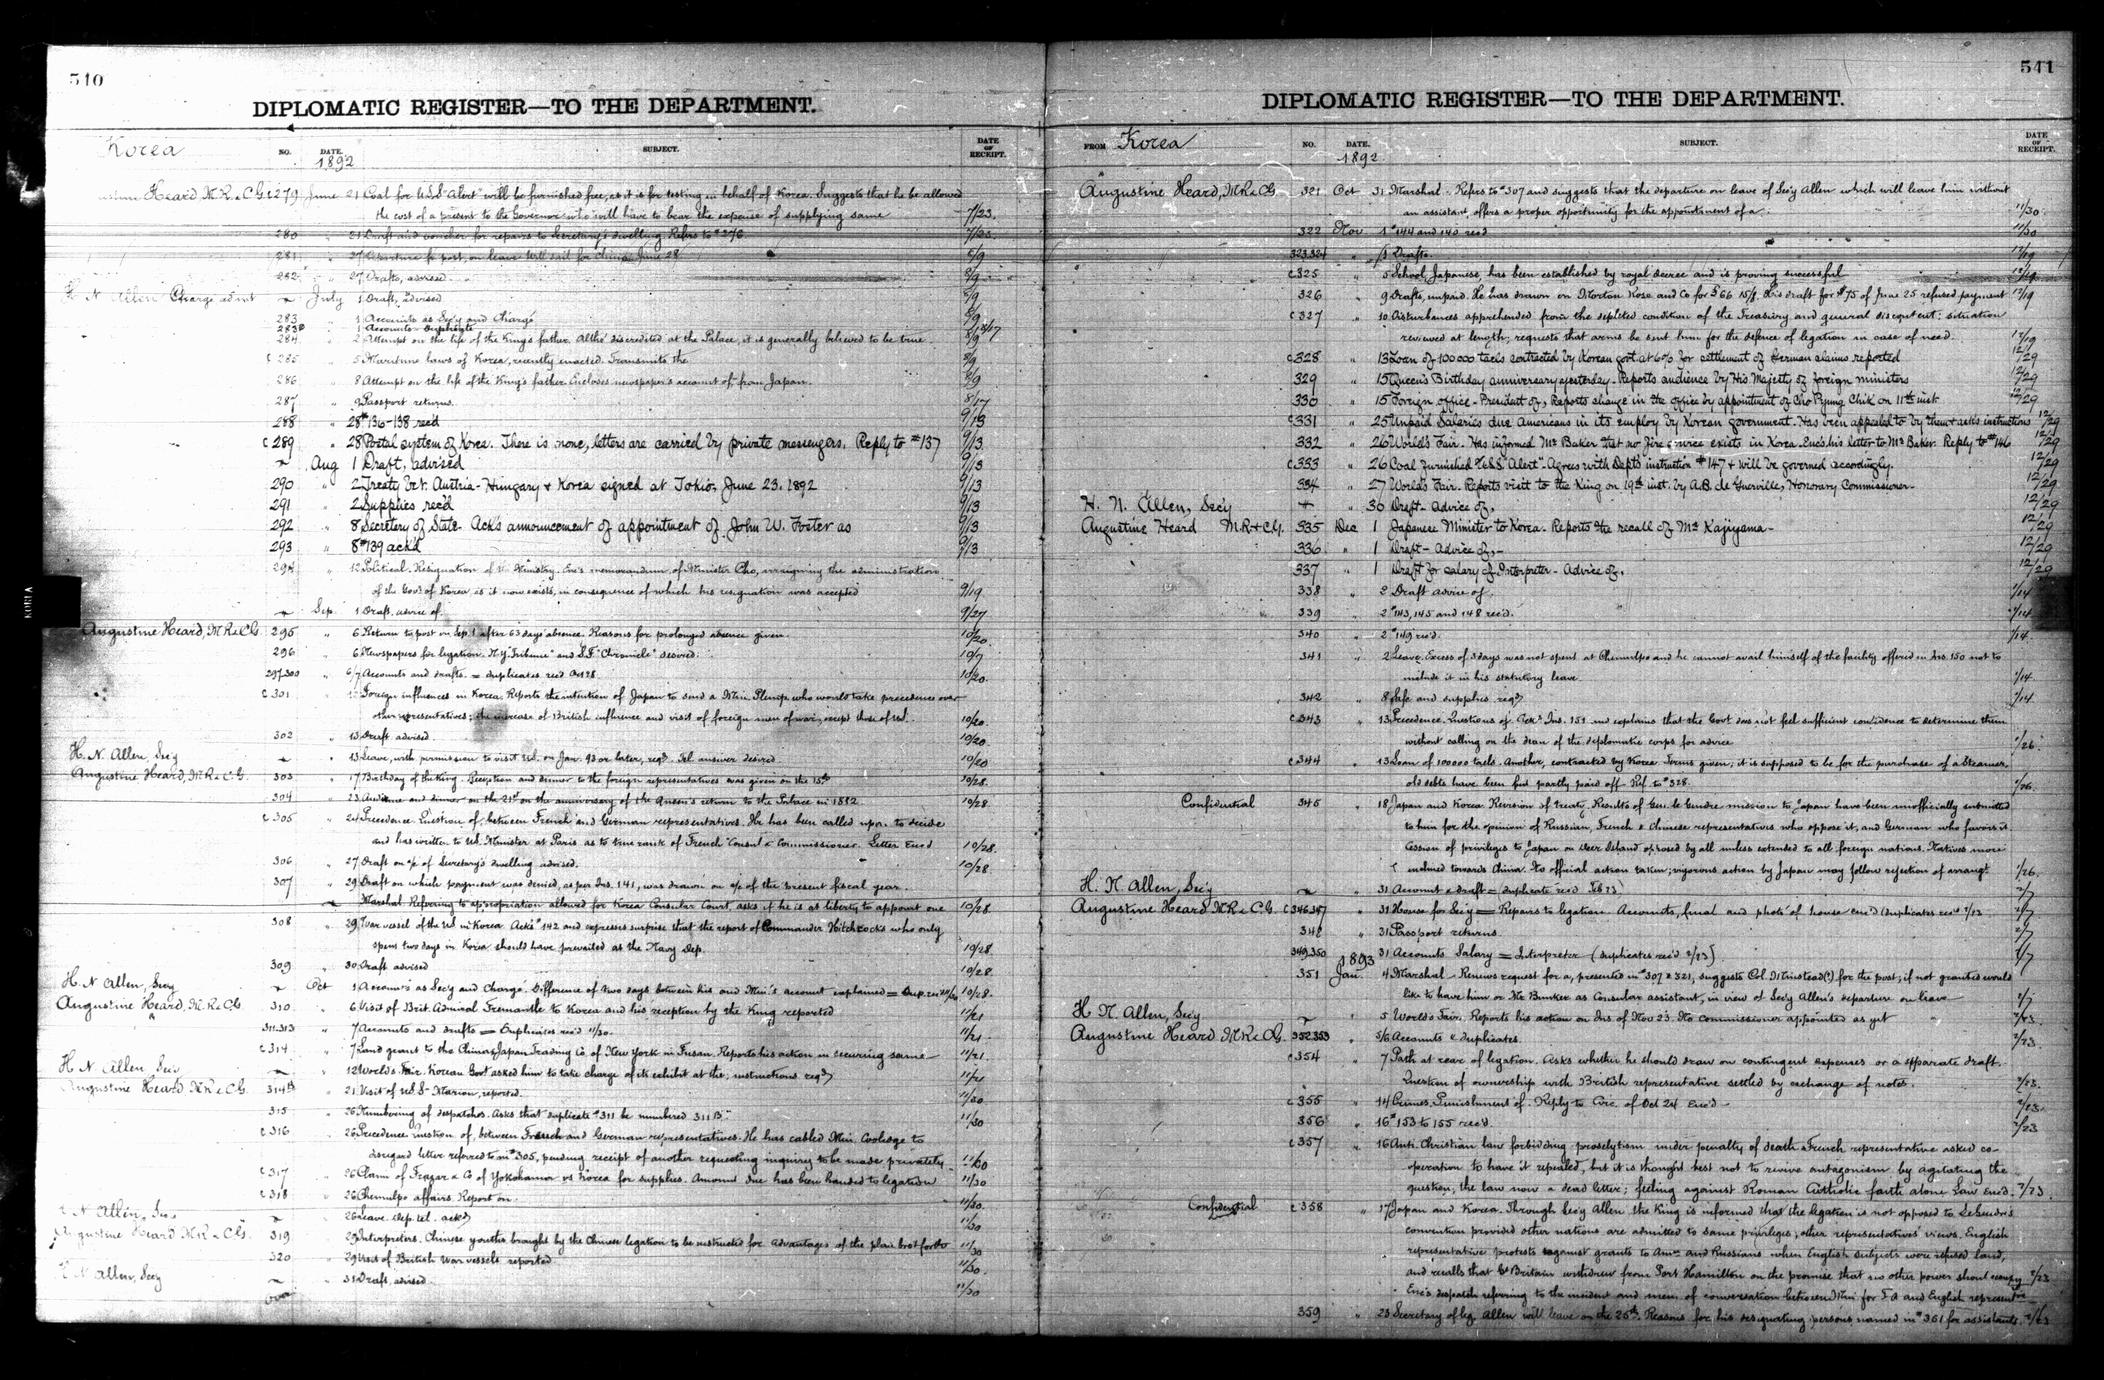 540
DIPLOMATIC REGISTER—TO THE DEPARTMENT.
Korea NO. DATE. SUBJECT. DATE OF RECEIPT.
1892
Heard M.R. & C.G. c279 June 21 Coal for U.S.S. "Alert" will be furnished free, as it is for testing in behalf of Korea. Suggests that he be allowed
the cost of a present to the Governor who will have to bear the expense of supplying same 7/23.
280 " 21 Draft and voucher for repairs to Secretary's dwelling. Refers to #276 7/23.
281 " 27 Departure fr. post, on leave. Will sail for China June 28 8/9
282 " 27 Drafts, advised. 8/9
H N Allen Charge ad int ~ July 1 Draft, advised 8/9
283 " 1 Accounts as Sec'y and Chargé 8/9
283 " 1 Accounts - Duplicate 8/17
284 " 2 Attempt on the life of the King's father. Altho' discredited at the Palace, it is generally believed to be true 8/9
c 285 " 5 Maritime laws of Korea, recently enacted. Transmits the 8/9
286 " 8 Attempt on the life of the King's father. Encloses newspaper's account of from Japan. 8/9
287 " 9 Passport returns. 8/17
288 " 28 #136-138 rec'd 9/13
c 289 " 28 Postal system of Korea. There is none, letters are carried by private messengers. Reply to #137 9/13
~ Aug 1 Draft, advised 9/13
290 " 2 Treaty bet. Austria-Hungary & Korea signed at Tokio, June 23. 1892 9/13
291 2 Supplies rec'd 9/13
292 " 8 Secretary of State- Ack's announcement of appointment of John W. Foster as 9/13
293 " 8 #139 ack'd 9/13
294 " 12 Political. Resignation of the Ministry. Enc's memorandum of Minister Cho, arraigning the administration
of the Govt of Korea as it now exists, in consequence of which his resignation was accepted 9/19
~ Sep. 1 Draft, advice of. 9/27
Augustine Heard, M.R. & C.G. 295 " 6 Return to post on Sep. 1 after 63 days absence. Reasons for prolonged absence given. 10/20
296 " 6 Newspapers for legation. N.Y. "Tribune" and S.F. "Chronicle" desired. 10/7
297-300 6/7 Accounts and drafts. = duplicates rec'd Oct 28 10/20.
c 301 " Foreign influences in Korea. Reports the intention of Japan to send a Min. Plenip. who would take precedence over
other representatives; the increase of British influence and visit of foreign men of war, except those of U.S. 10/20.
302 " 13 Draft advised. 10/20.
H. N. Allen, Sec'y ~ " 13 Leave, with permission to visit U.S. on Jan. 93 or later, reqd. Tel. answer desired. 10/20
Augustine Heard, M.R. & C.G. 303 " 17 Birthday of the King. Reception and dinner to the foreign representatives was given on the 15th 10/28.
304 " 23 Audience and dinner on the 21st on the anniversary of the Queen's return to the Palace in 1882 10/28
c 305 " 24 Precedence. Question of, between French and German representatives. He has been called upon to decide
and has written to U.S. Minister at Paris as to true rank of French Consul & Commissioner. Letter Enc'd 10/28.
306 " 27 Draft on a/c of Secretary's dwelling advised. 10/28
307 " 29 Draft on which payment was denied, as per Ins. 141, was drawn on a/c of the present fiscal year.
~ Marshal. Referring to appropriation allowed for Korea Consular Court, asks if he is at liberty to appoint one 10/28.
308 " 29 War vessel of the U.S. in Korea. Acks #142 and expresses surprise that the report of Commander Hitchcock's who only
spent two days in Korea should have prevailed at the Navy Dep. 10/28
309 " 30 Draft advised 10/28.
H. N Allen, Sec'y ~ Oct 1 Accounts as Sec'y and Chargé. Difference of two days between his and Min's account explained = Dup. rec 10/28.
Augustine Heard, M.R. & C.G. 310 " 6 Visit of Brit. Admiral Fremantle to Korea and his reception by the King reported 11/21
311-313 " 7 Accounts and drafts = Duplicates rec'd 11/30. 11/21.
c 314 " 7 Land grant to the China & Japan Trading Co. of New York in Fusan. Reports his action in securing same 11/21
H N Allen, Sec'y ~ " 12 World's Fair. Korean Govt asked him to take charge of its exhibit at the; instructions reqd 11/21
Augustine Heard M.R. & C.G. 314B " 21 Visit of U.S.S. Marion, reported. 11/30
315 " 26 Numbering of despatches. Asks that duplicate #311 be numbered 311B 11/30
c 316 " 26 Precedence. Question of, between French and German representatives. He has cabled Min. Coolidge to
disregard letter referred to in #305, pending receipt of another requesting inquiry to be made privately 11/30
c 317 " 26 Claim of Frazar & Co of Yokohama vs Korea for supplies. Amount due has been handed to legation 11/30
c 318 " 26 Chemulpo affairs. Report on. 11/30.
H N Allen, Sec'y ~ 26 Leave. Dep. tel. ackd 11/30
Augustine Heard M.R. & C.G. 319 " 29 Interpreters. Chinese youths brought by the Chinese legation to be instructed for advantages of the plan 11/30
320 " 29 Visit of British War vessels reported 11/30.
H N Allen, Sec'y ~ " 31 Draft, advised. 11/30
541
DIPLOMATIC REGISTER—TO THE DEPARTMENT.
FROM Korea NO. DATE. SUBJECT. DATE OF RECEIPT.
1892
Augustine Heard, M.R. & C.G. 321 Oct 31 Marshal. Refers to #307 and suggests that the departure on leave of Sec'y Allen which will leave him without
an assistant, offers a proper opportunity for the appointment of a. 11/30
322 Nov 1 #144 and 140 rec'd 11/30
323.324 " Drafts. 12/19
c325 " 5 School, Japanese, has been established by royal decree and is proving successful 12/19.
326 " 9 Drafts, unpaid. He has drawn on Morton Rose and Co for £66 15/8. His draft for $75 of June 25 refused payment 12/19
c327 " 10 Disturbances apprehended from the depleted condition of the Treasury and general discontent: situation
reviewed at length; requests that arms be sent him for the defence of legation in case of need. 12/19
c328 " 13 Loan of 100000 taels contracted by Korean govt. at 6% for settlement of German claims reported 12/29
329 " 15 Queen's Birthday anniversary yesterday- Reports audience by His Majesty of foreign ministers 12/29
330 " 15 Foreign office- President of, Reports change in the office by appointment of Cho Pyung Chik on 11th inst. 12/29
c331 " 25 Unpaid Salaries due Americans in its employ by Korean government. Has been appealed to by them & asks instructions 12/29
332 " 26 World's Fair. Has informed Mr Baker that no fire service exists in Korea. Enc's his letter to Mr Baker. Reply to #146 12/29
c333 " 26 Coal furnished U.S.S. "Alert"- Agrees with Dept's instruction #147 & will be governed accordingly. 12/29
334 " 27 World's Fair- Reports visit to the King on 19th inst. by A.B. de Guerville, Honorary Commissioner- 12/29
H. N. Allen, Sec'y " 30 Draft- Advice of, 12/29
Augustine Heard M.R. & C.G. 335 Dec 1 Japanese Minister to Korea- Reports the recall of Mr Kajiyama- 12/29
336 " 1 Draft- Advice of,- 12/29
337 " 1 Draft for salary of Interpreter- Advice of. 12/29
338 " 2 Draft advice of. 1/14
339 " 2 #143, 145 and 148 rec'd. 1/14
340 " 2 #149 rec'd. 1/14.
341 " 2 Leave. Excess of 3 days was not spent at Chemulpo and he cannot avail himself of the facility offered in Ins. 150 not to
include it in his statutory leave. 1/14.
342 " 8 Safe and supplies reqd 1/14
c343 " 13 Precedence. Questions of. Acks Ins. 151 and explains that the Govt does not feel sufficient confidence to determine them
without calling on the dean of the diplomatic corps for advice 1/26.
c344 " 13 Loan of 100000 taels. Another, contracted by Korea. Terms given; it is supposed to be for the purchase of a steamer,
old debts have been but partly paid off. Ref. to #328. 1/26.
Confidential 345 " 18 Japan and Korea. Revision of treaty. Results of Gen. le Gendre mission to Japan have been unofficially submitted
to him for the opinion of Russian, French & Chinese representatives who oppose it, and German who favors it.
Cession of privileges to Japan on Deer Island opposed by all unless extended to all foreign nations. Natives more
inclined towards China. No official action taken; vigorous action by Japan may follow rejection of arrangt 1/26.
H. N Allen, Sec'y ~ " 31 Account & draft = duplicate rec'd Feb 23 2/7
Augustine Heard M.R. & C.G. c346.347 " 31 House for Sec'y = Repairs to legation. Accounts, final and photo of house enc'd (duplicates rec'd 2/23 2/7
348 " 31 Passport returns. 2/7
349.350 " 31 Accounts Salary = Interpreter (duplicates rec'd 2/23) 2/7
1893
351 Jan. 4 Marshal- Renews request for a, presented in #307 & 321, suggests Col. Nienstead(?) for the post; if not granted would
like to have him or Mr Bunker as Consular assistant, in view of Sec'y Allen's departure on leave 2/7
H N. Allen, Sec'y ~ " 5 World's Fair. Reports his action on Ins of Nov 23. No commissioner appointed as yet 2/23.
Augustine Heard M.R. & C.G. 352.353 " 5/6 Accounts & duplicates. 2/23.
c354 " 7 Path at rear of legation. Asks whether he should draw on contingent expenses or a separate draft.
Question of ownership with British representative settled by exchange of notes. 2/23.
c355 " 14 Crimes, Punishment of. Reply to Circ. of Oct 24 Enc'd 2/23.
356 " 16 #153 to 155 rec'd. 2/23
c357 " 16 Anti. Christian law forbidding proselytism under penalty of death. French representative asked co-
operation to have it repealed, but it is thought best not to revive antagonism by agitating the
question; the law now a dead letter; feeling against Roman Catholic faith alone. Law Enc'd. 2/23.
Confidential c358 " 17 Japan and Korea. Through Sec'y Allen the King is informed that the legation is not opposed to LeGendre's
convention provided other nations are admitted to same privileges; other representatives' views. English
representative protests against grants to Amn and Russians when English subjects were refused land,
and recalls that Gt Britain withdrew from Port Hamilton on the promise that no other power should occupy 2/23.
Enc's despatch referring to the incident and mem. of conversation between Min. for F.A. and English representve
359 " 23 Secretary of leg. Allen will leave on the 25th. Reasons for his designating persons named in #351 for assistants. 2/23